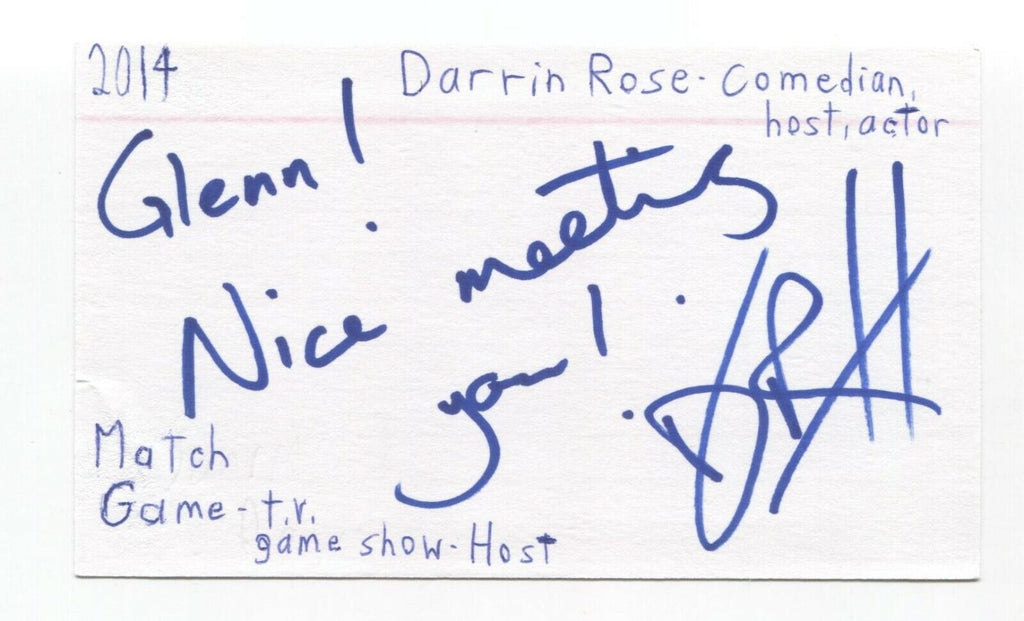 2014
Darrin Rose - Comedian,
host, actor
Glenn!
Nice meeting
you!
Match
Game - t.v.
game show - Host